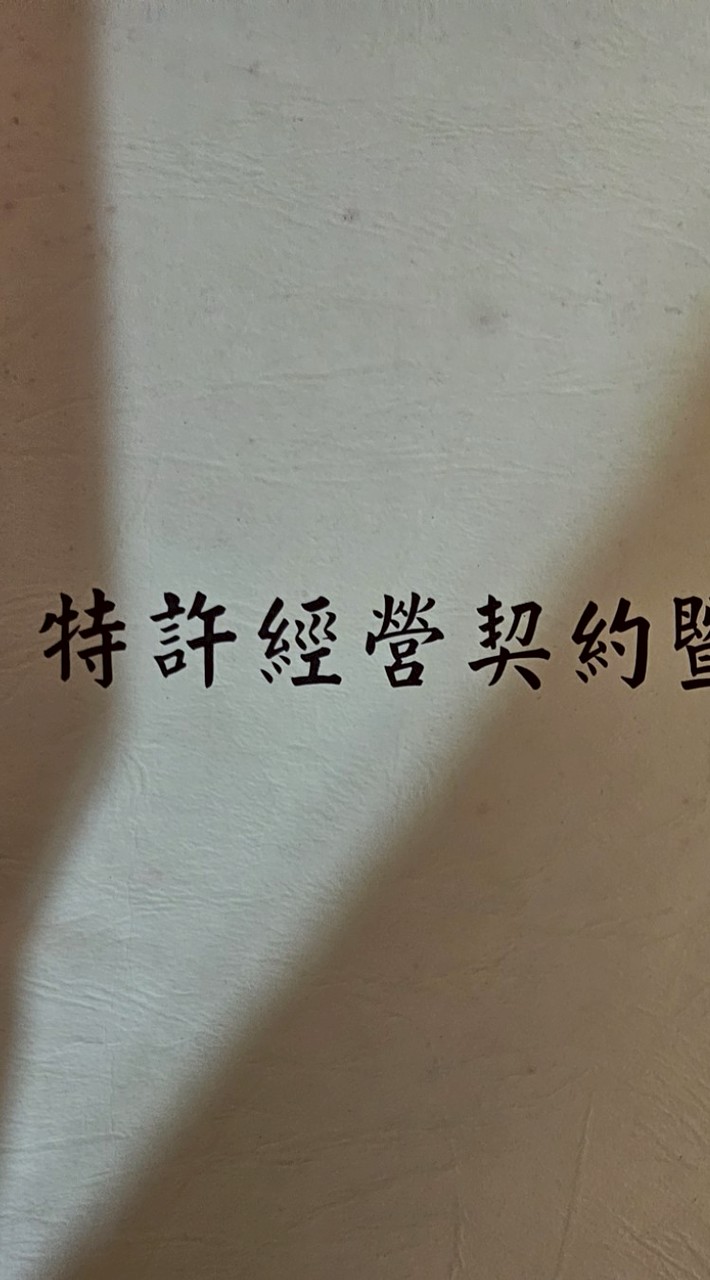 特許經營契約暨